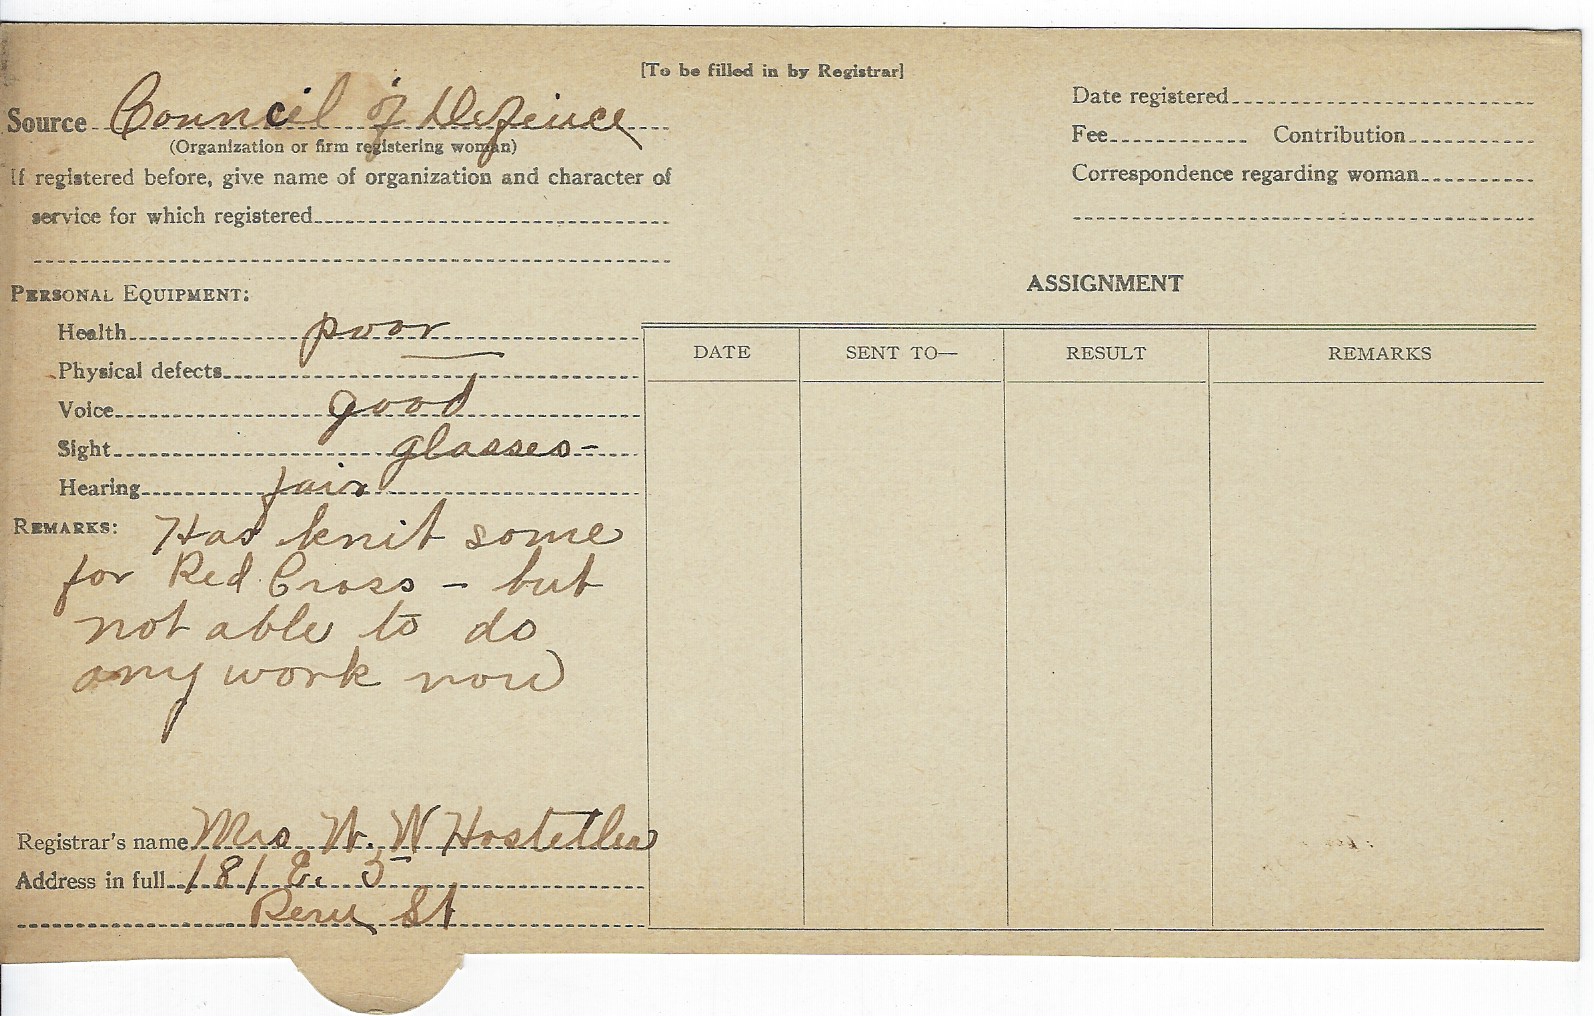 [To be filled in by Registrar]
Source Council of Defence
(Organization or firm registering woman)
If registered before, give name of organization and character of
service for which registered
PERSONAL EQUIPMENT:
Health poor
Physical defects —
Voice good
Sight glasses –
Hearing fair
REMARKS: Has knit some
for Red Cross – but
not able to do
any work now
Registrar's name Mrs W. W Hostetler
Address in full 181 E. 5
Peru St
Date registered
Fee Contribution
Correspondence regarding woman
ASSIGNMENT
DATE SENT TO— RESULT REMARKS